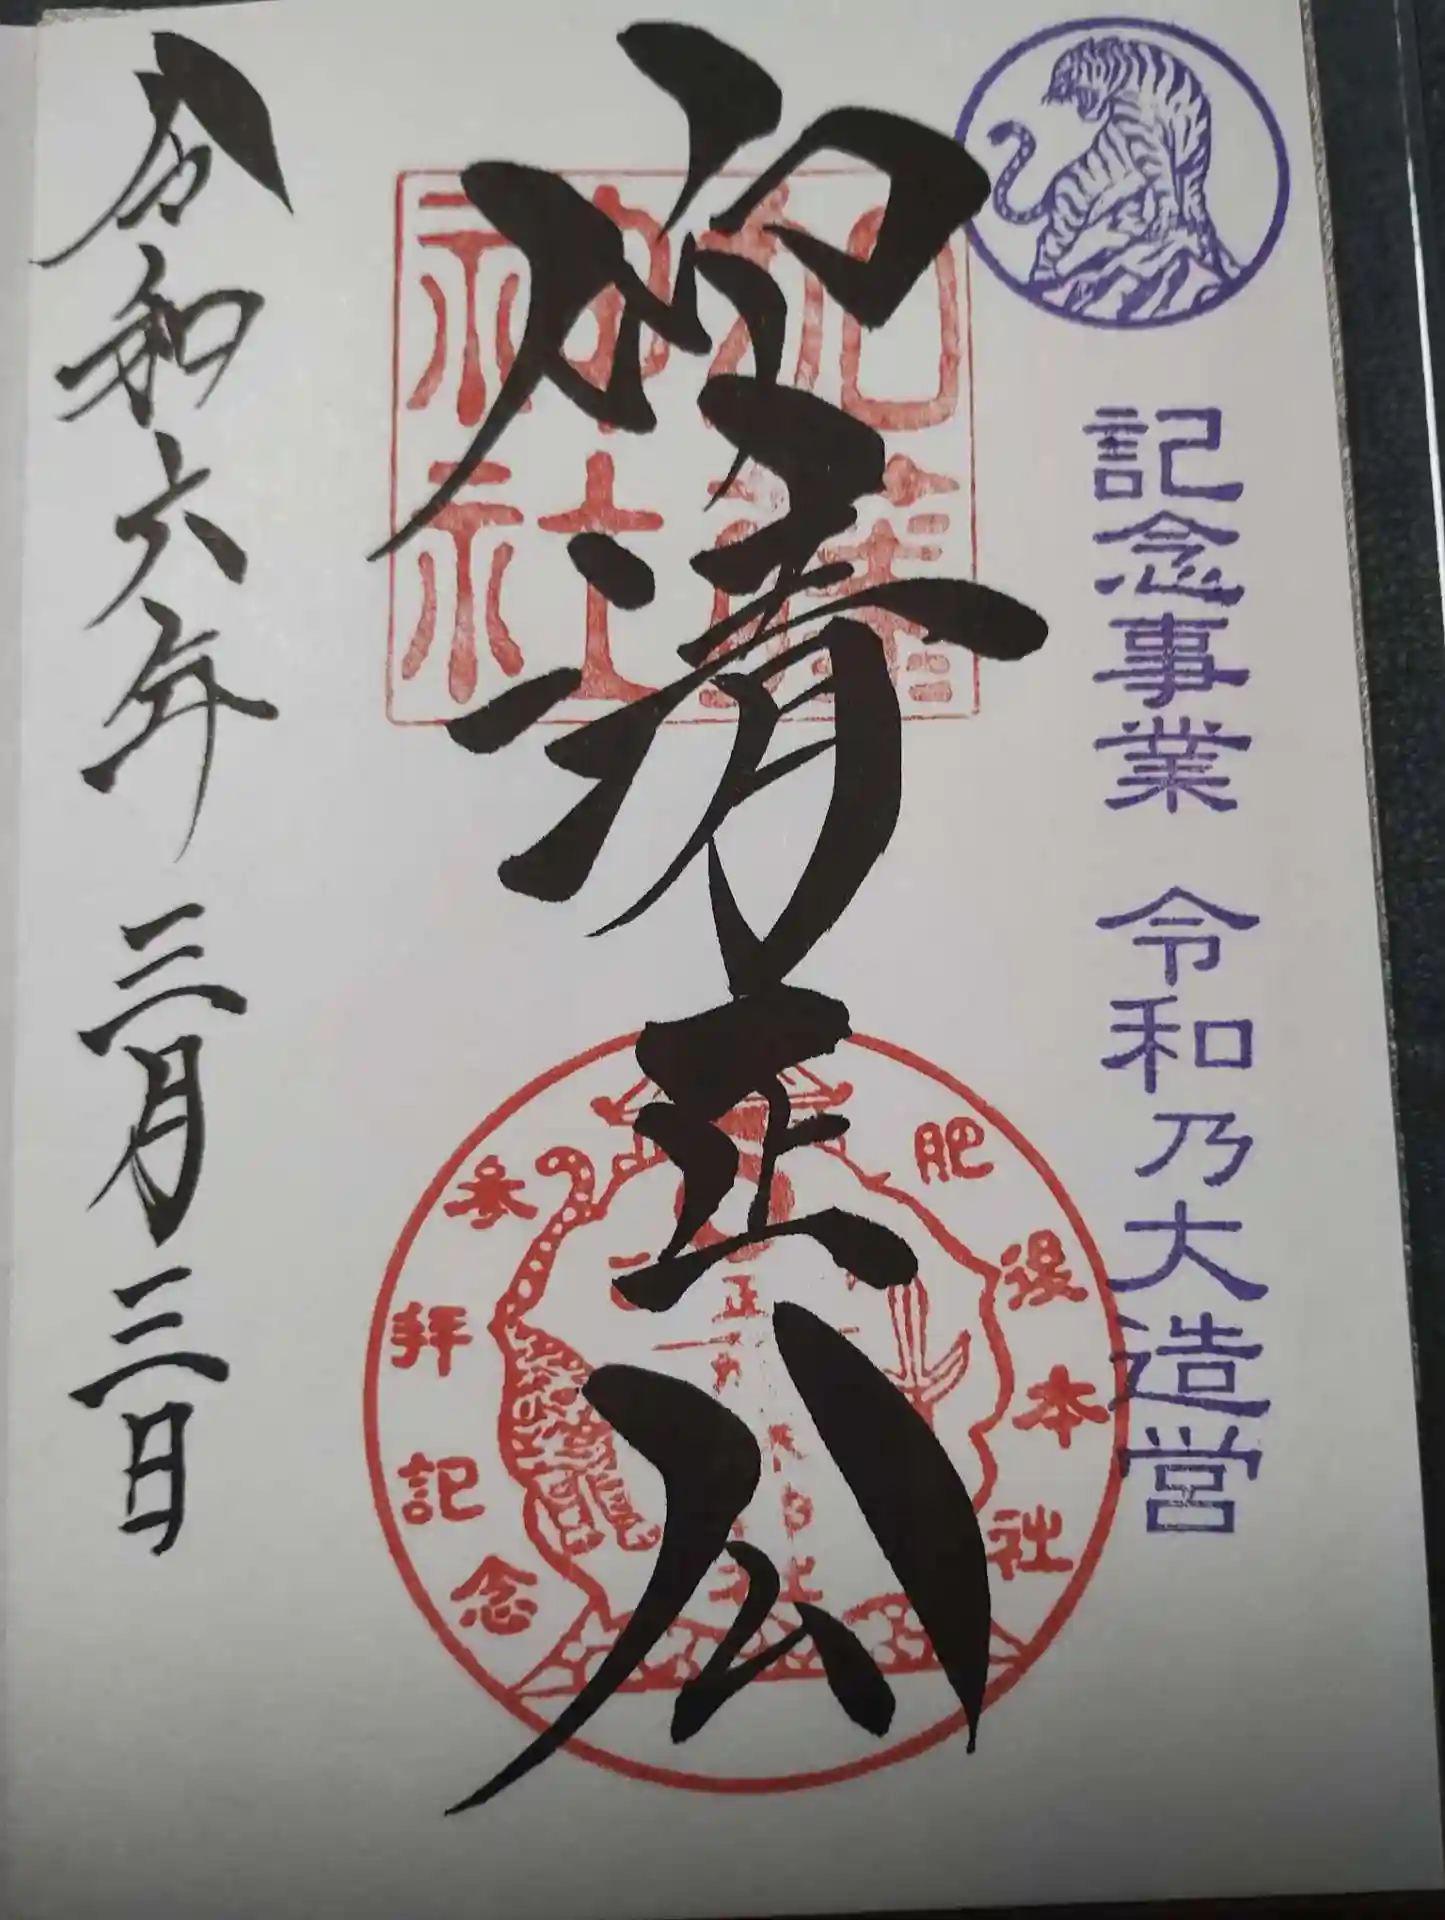 記念事業 令和乃大造営
仰清正公
加藤
神社
肥後本社
参拝記念
令和六年 三月三日